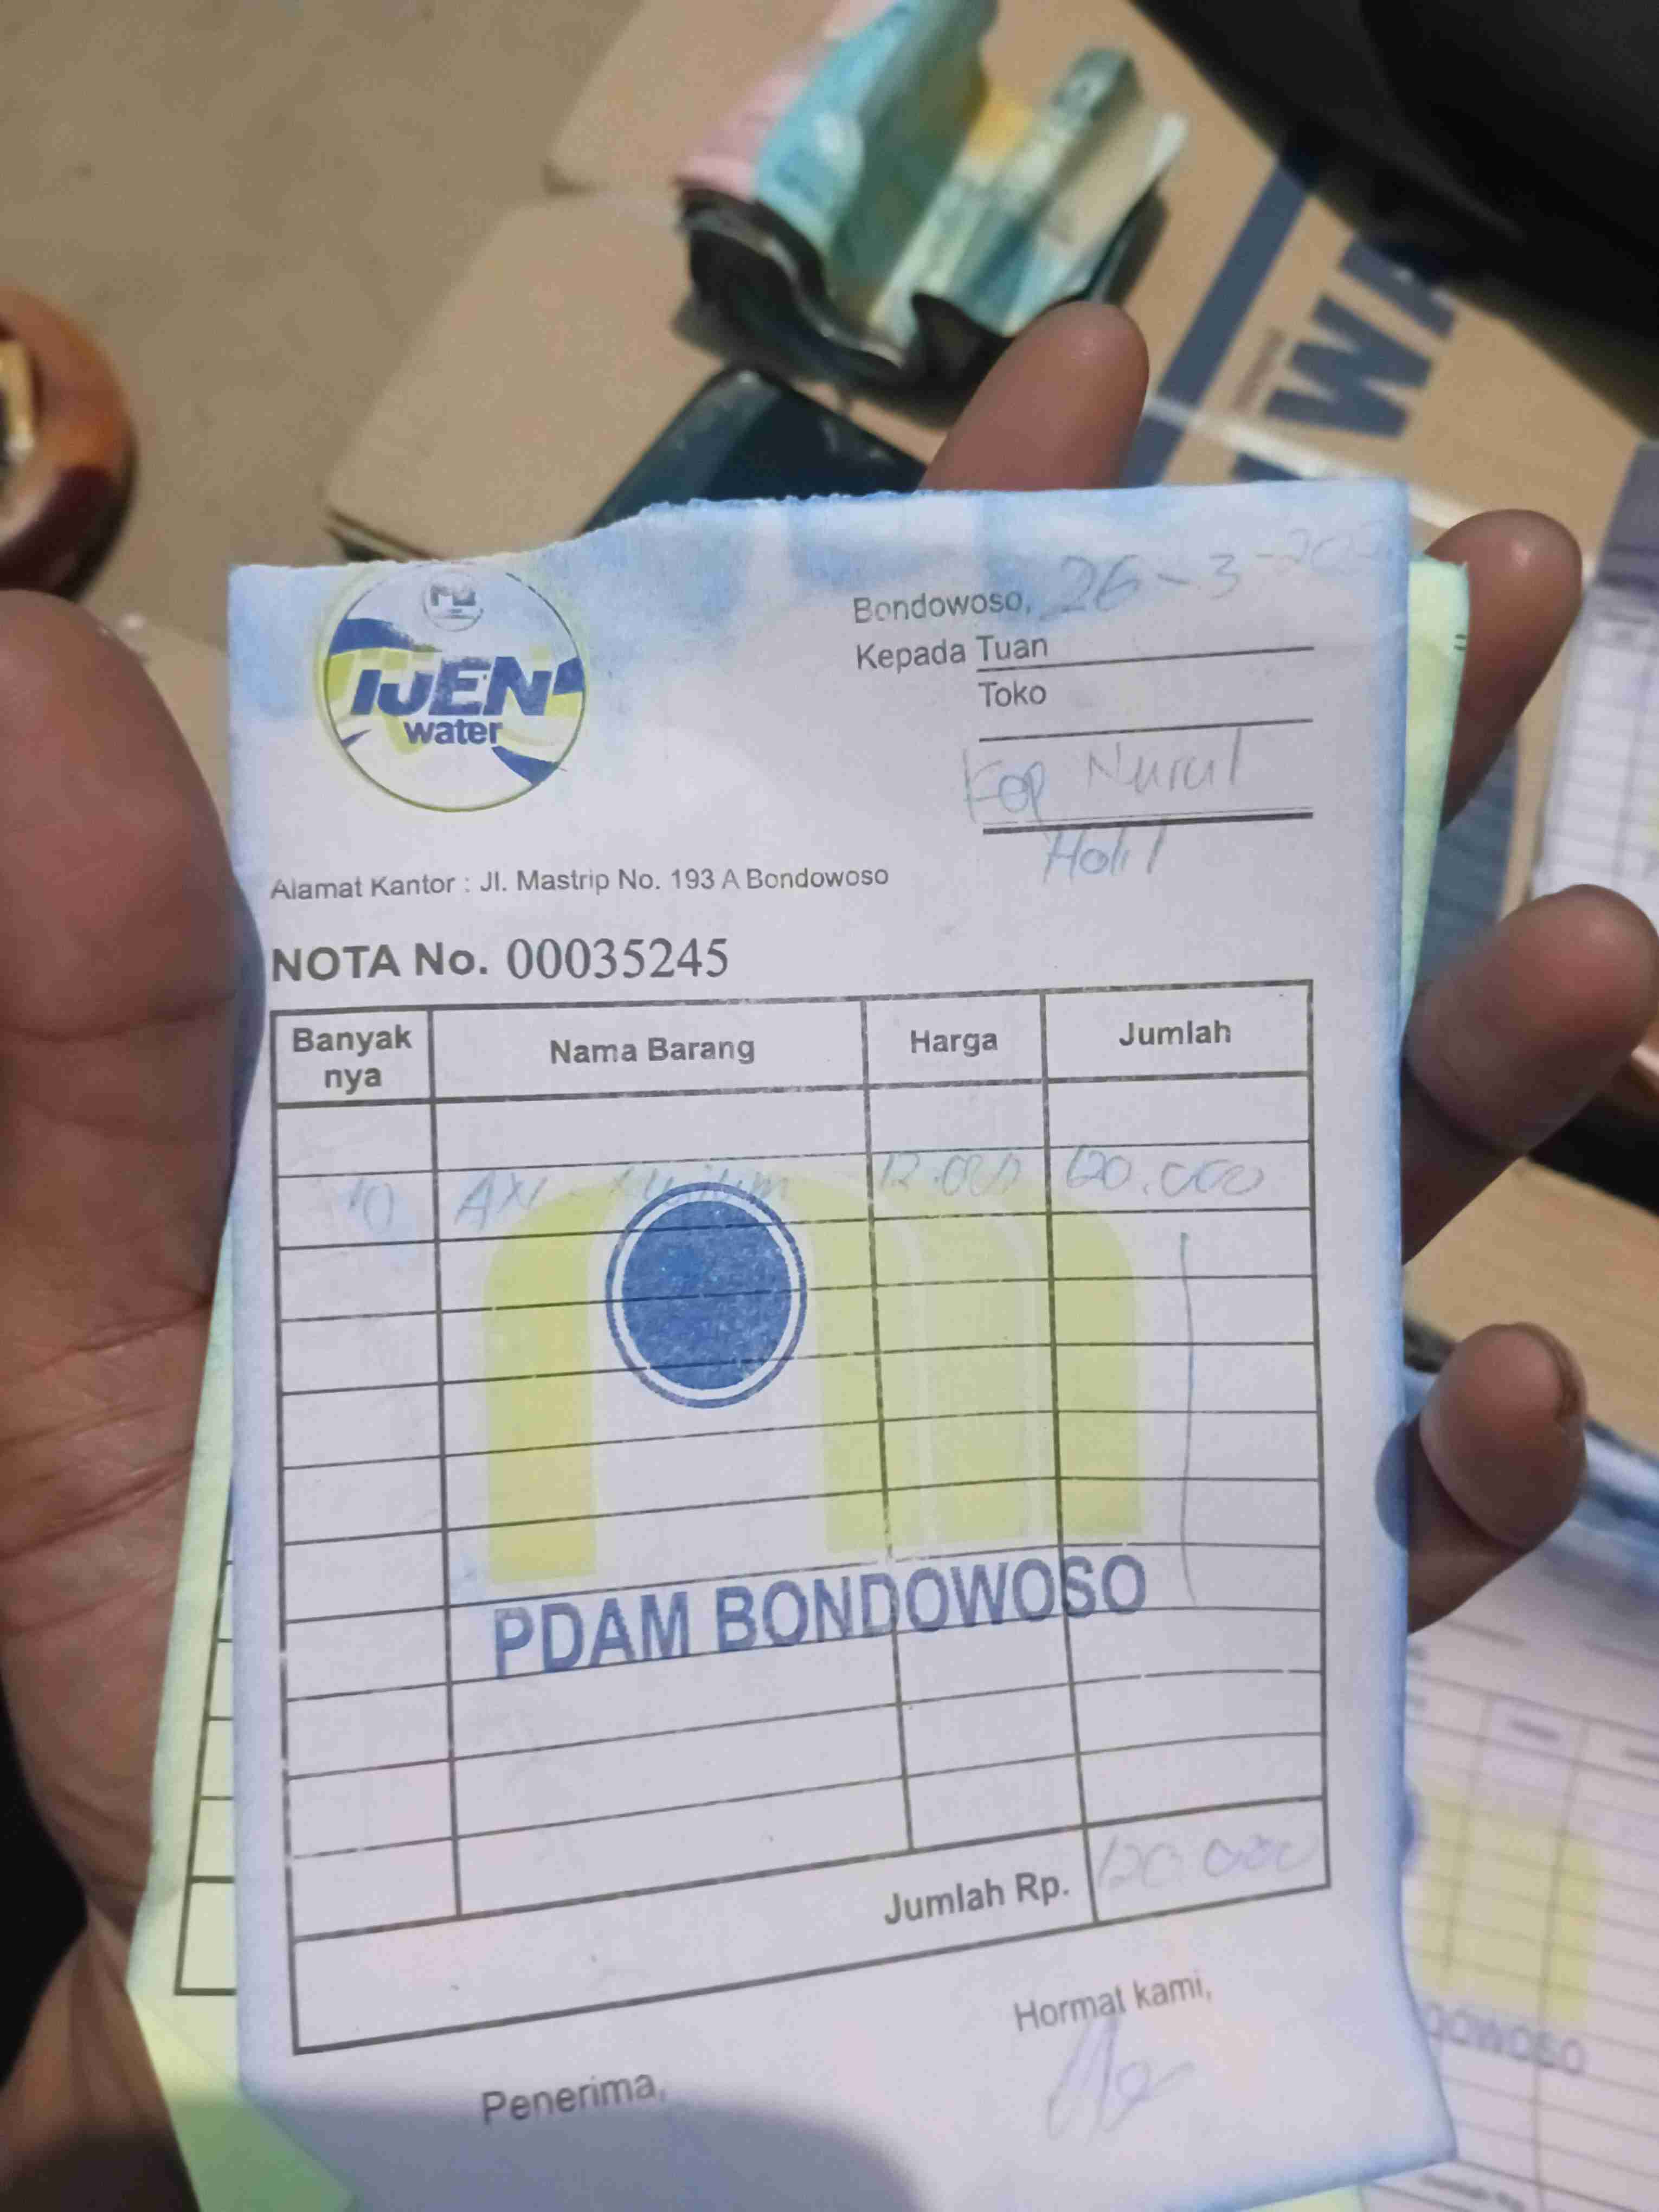 IJEN
water
Bondowoso, 26-3-20
Kepada Tuan
Toko
Kop Nurul
Holil
Alamat Kantor : Jl. Mastrip No. 193 A Bondowoso
NOTA No. 00035245
Banyak nya Nama Barang Harga Jumlah
10 12.000 120.000
PDAM BONDOWOSO
Jumlah Rp. 120.000
Hormat kami,
Penerima,
DOWOSO